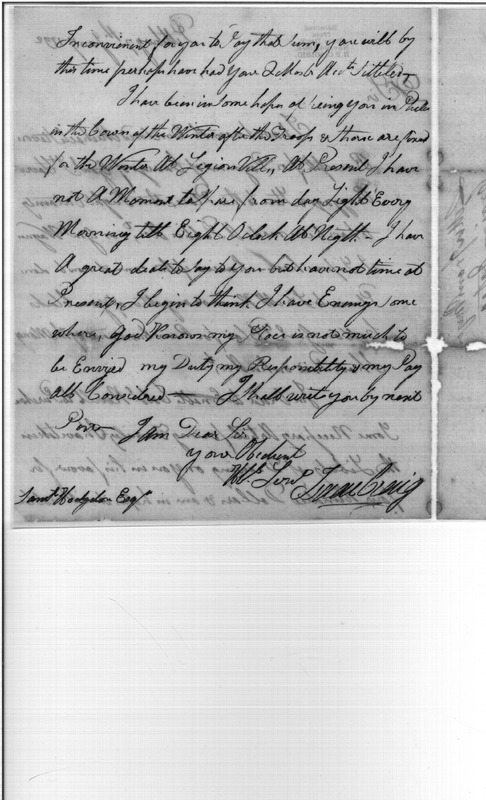 Inconvenient for you to Pay that Sum, you will by
this time perhaps have had your Acts Settled
I have been in some hopes of seeing you in
in the Cours of the Winter after the Troops & those are fixed
for the Winter At Legion Ville, At Present I have
not A Moment to spare from day Light Every
Morning till Eight OClock At Night - I have
A great deal to say to you but have not time at
Present, I begin to think I have Enemys some
where, God Knows my Place is not much to
be Envied my Duty my Responsibility & my Pay
all Considred — I Shall writ you by next
Post
I am Dear Sir
your Obedient
Hble Servt Isaac Craig
Saml Hodgdon Esqr